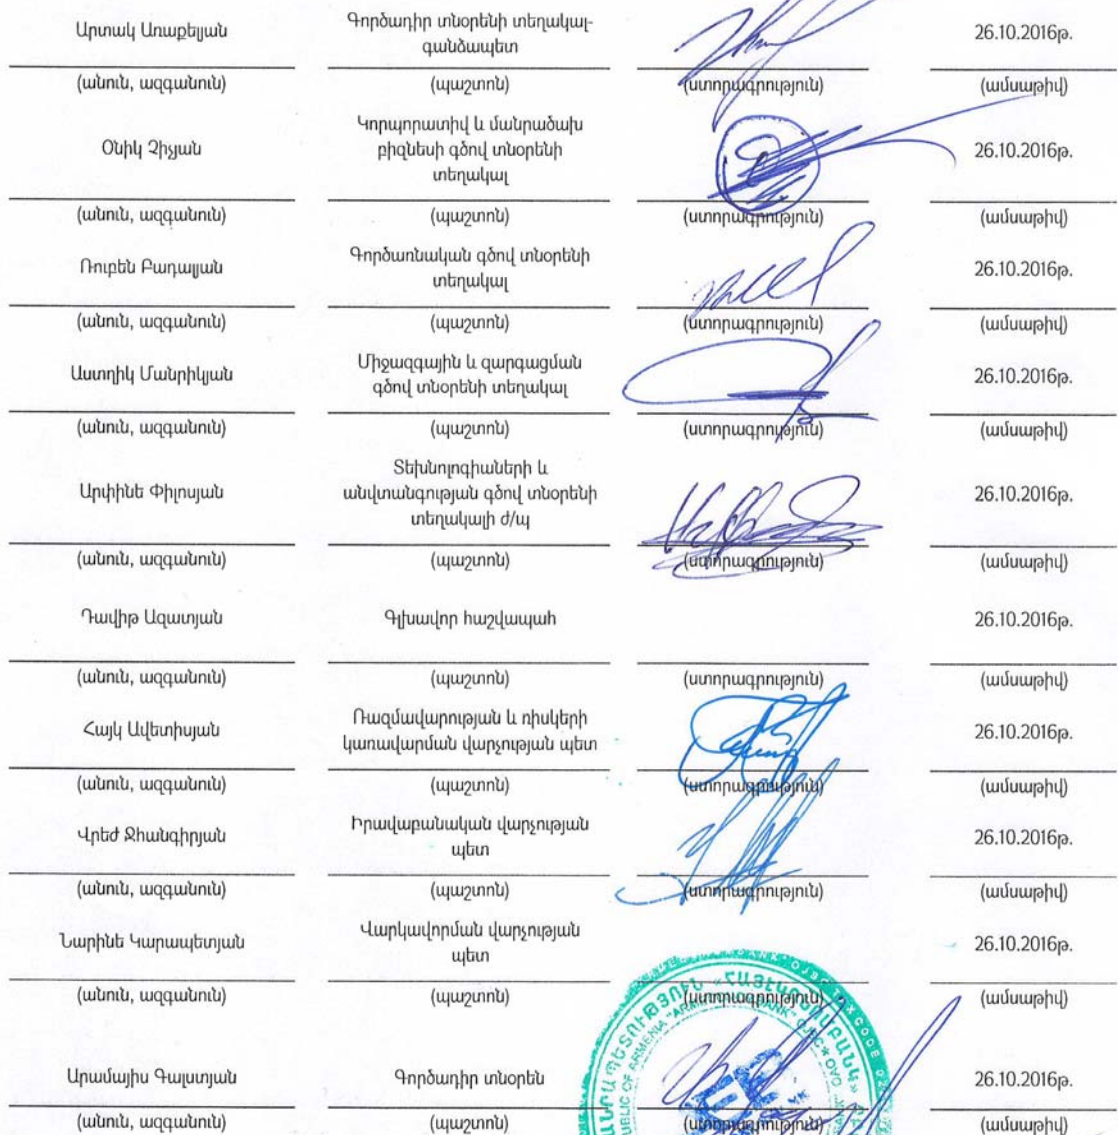 Արտակ Առաքելյան
Գործադիր տնօրենի տեղակալ-
գանձապետ
26.10.2016թ.
(անուն, ազգանուն)
(պաշտոն)
(ստորագրություն)
(ամսաթիվ)
Օնիկ Չիչյան
Կորպորատիվ և մանրածախ
բիզնեսի գծով տնօրենի
տեղակալ
26.10.2016թ.
(անուն, ազգանուն)
(պաշտոն)
(ստորագրություն)
(ամսաթիվ)
Ռուբեն Բադալյան
Գործառնական գծով տնօրենի
տեղակալ
26.10.2016թ.
(անուն, ազգանուն)
(պաշտոն)
(ստորագրություն)
(ամսաթիվ)
Աստղիկ Մանրիկյան
Միջազգային և զարգացման
գծով տնօրենի տեղակալ
26.10.2016թ.
(անուն, ազգանուն)
(պաշտոն)
(ստորագրություն)
(ամսաթիվ)
Արփինե Փիլոսյան
Տեխնոլոգիաների և
անվտանգության գծով տնօրենի
տեղակալի ժ/պ
26.10.2016թ.
(անուն, ազգանուն)
(պաշտոն)
(ստորագրություն)
(ամսաթիվ)
Դավիթ Ազատյան
Գլխավոր հաշվապահ
26.10.2016թ.
(անուն, ազգանուն)
(պաշտոն)
(ստորագրություն)
(ամսաթիվ)
Հայկ Ավետիսյան
Ռազմավարության և ռիսկերի
կառավարման վարչության պետ
26.10.2016թ.
(անուն, ազգանուն)
(պաշտոն)
(ստորագրություն)
(ամսաթիվ)
Վրեժ Ջհանգիրյան
Իրավաբանական վարչության
պետ
26.10.2016թ.
(անուն, ազգանուն)
(պաշտոն)
(ստորագրություն)
(ամսաթիվ)
Նարինե Կարապետյան
Վարկավորման վարչության
պետ
26.10.2016թ.
(անուն, ազգանուն)
(պաշտոն)
(ստորագրություն)
(ամսաթիվ)
Արամայիս Գալստյան
Գործադիր տնօրեն
26.10.2016թ.
(անուն, ազգանուն)
(պաշտոն)
(ստորագրություն)
(ամսաթիվ)